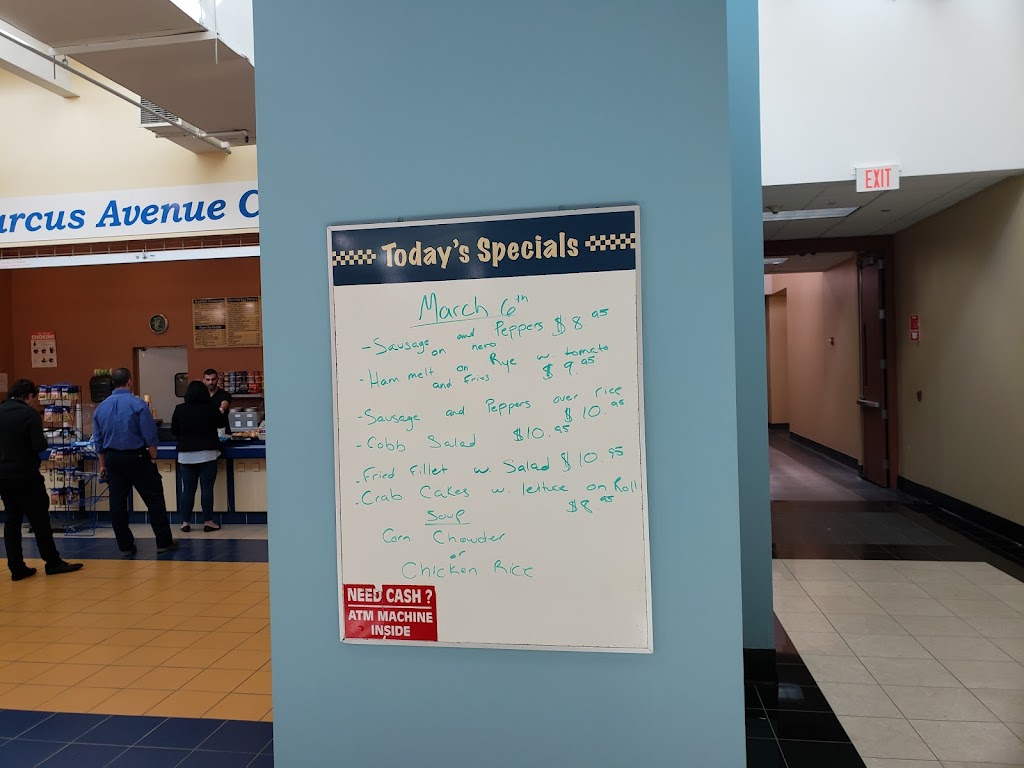 arcus Avenue C
EXIT
Today's Specials
March 6th
- Sausage and Peppers $8.95
on hero
- Ham melt on Rye w. tomato
and fries $9.95
- Sausage and Peppers over rice
$10.95
- Cobb Salad $10.95
- Fried Fillet w. Salad $10.95
- Crab Cakes w. lettuce on Roll
$8.95
Soup
Corn Chowder
or
Chicken Rice
NEED CASH?
ATM MACHINE
INSIDE